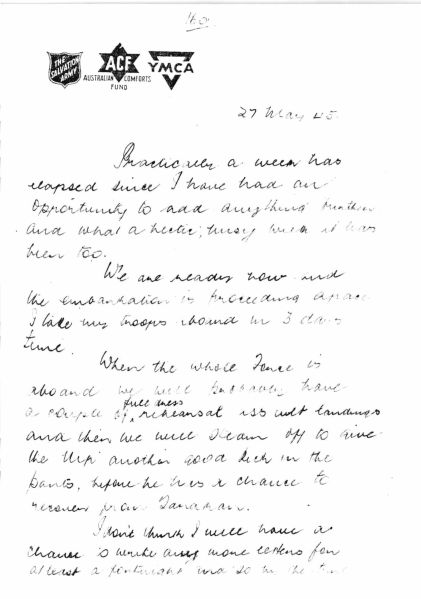 THE SALVATION ARMY
ACF
AUSTRALIAN COMFORTS FUND
YMCA
27 May 45.
Practically a week has
elapsed since I have had an
opportunity to add anything further
and what a hectic, busy week it has
been too.
We are ready now and
the embarkation is proceeding apace
I take my troops aboard in 3 days
time.
When the whole Force is
aboard we will probably have
a couple of full dress rehearsal assault landings
and then we will steam off to give
the Nip another good kick in the
pants, before he has a chance to
recover from Tarakan.
I don't think I will have a
chance to write any more letters for
at least a fortnight and so in the